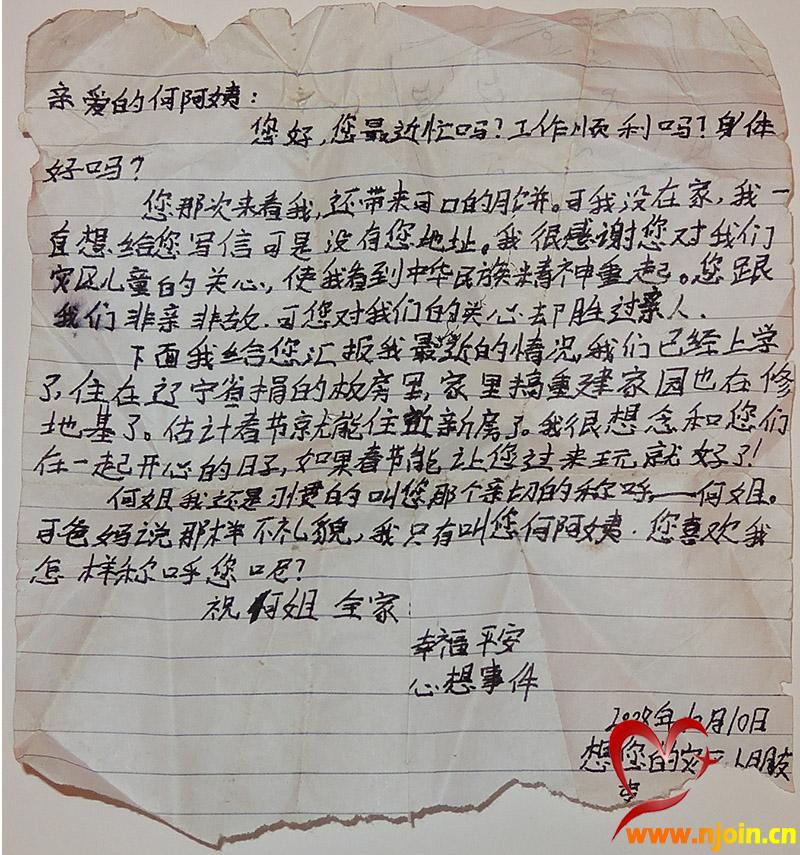 亲爱的何阿姨：
您好，您最近忙吗？工作顺利吗？身体
好吗？
您那次来看我，还带来可口的月饼。可我没在家，我一
直想给您写信可是没有您地址。我很感谢您对我们
灾区儿童的关心，使我看到中华民族精神重起。您跟
我们非亲非故.可您对我们的关心却胜过亲人.
下面我给您汇报我最近的情况,我们已经上学
了，住在辽宁省捐的板房里，家里搞重建家园也在修
地基了。估计春节就能住进新房了。我很想念和您们
在一起开心的日子，如果春节能让您过来玩就好了！
何姐我还是习惯的叫您那个亲切的称呼——何姐。
可爸妈说那样不礼貌，我只有叫您何阿姨.您喜欢我
怎样称呼您呢？
祝何姐全家：
幸福平安
心想事件
2008年 月10日
想您的灾区
www.njoin.cn